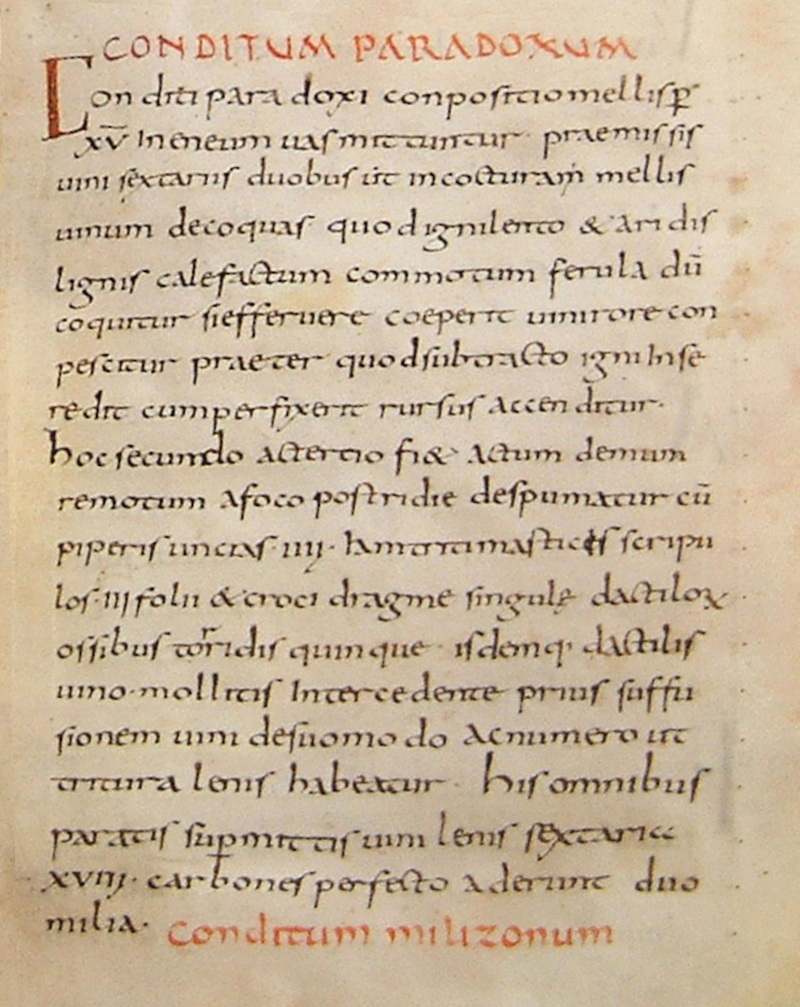 CONDITUM PARADOXUM
Conditi paradoxi conpositio mellis p̄
xv̄ In eneum uas mittuntur praemissis
uini sextariis duobus ut in cocturam mellis
uinum decoquas quod igni lento & aridis
lignis calefactum commotum ferula dū
coquitur si efferuere coeperit uini rore con
pescitur praeter quod subtracto igni In se
redit cum perfixerit rursus accenditur.
hoc secundo ac tertio fi& actum demum
remotum a foco postridie despumatur cū
piperis uncias ·IIIJ· Iam triti masticis scripu
los ·IIJ folii & croci dragme singule dactilox
ossibus torridis quinque isdemq· dactilis
uino mollitis Intercedente prius suffu
sionem uini de suo modo ac numero ut
tritura lenis habeatur his omnibus
paratis supmittis uini lenis sextaria
XVIIJ· carbones perfecto aderunt duo
milia·
Conditum milizonum